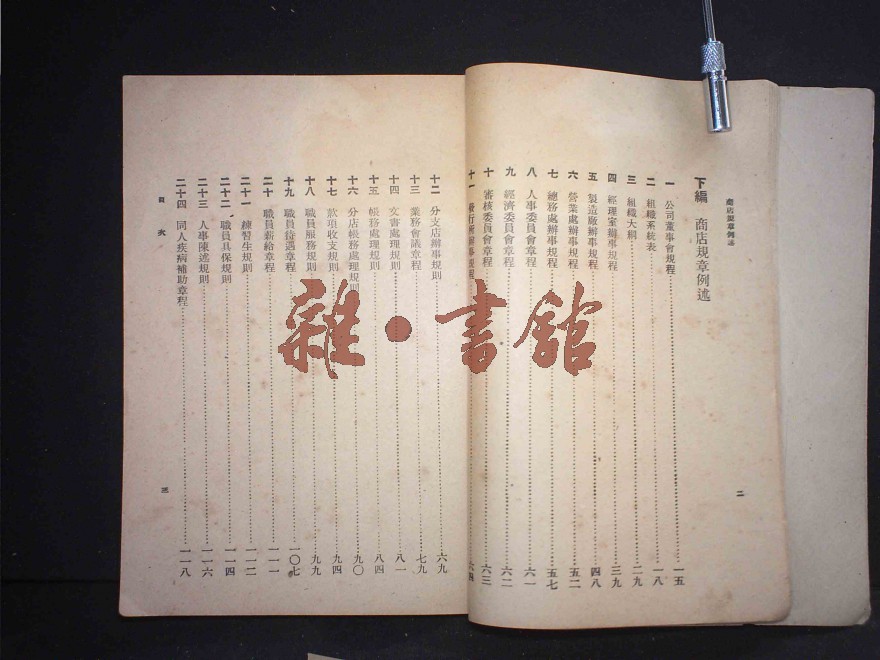 商店規章例述
下編 商店規章例述
一 公司董事會規程 一五
二 組織系統表 一八
三 組織大綱 二九
四 經理室辦事規程 三九
五 製造廠辦事規程 四八
六 營業處辦事規程 五二
七 總務處辦事規程 五七
八 人事委員會章程 六一
九 經濟委員會章程 六二
十 審核委員會章程 六三
十一 發行所辦事規程 六四
二
十二 分支店辦事規則 六九
十三 業務會議章程 七九
十四 文書處理規則 八一
十五 帳務處理規則 八四
十六 分店帳務處理規則 九〇
十七 款項收支規則 九四
十八 職員服務規則 九九
十九 職員待遇章程 一〇七
二十 職員薪給章程 一一一
二十一 練習生規則 一一二
二十二 職員具保規則 一一四
二十三 人事陳述規則 一一六
二十四 同人疾病補助章程 一一八
目次
三
雜·書館